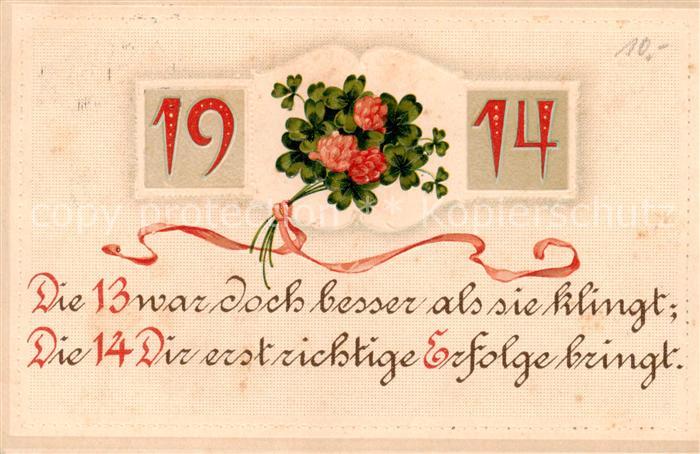 10,-
19 14
copy protection * * Kopierschutz
Die 13 war doch besser als sie klingt;
Die 14 Dir erst richtige Erfolge bringt.